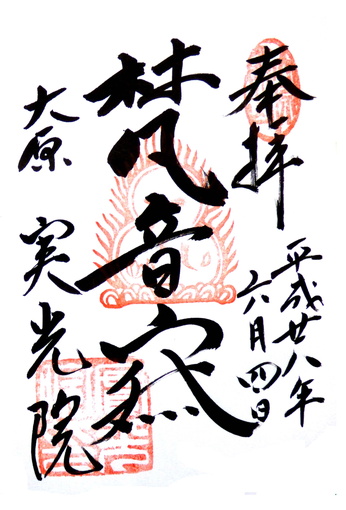 奉拝
平成廿八年
六月四日
梵音
大原 実光院